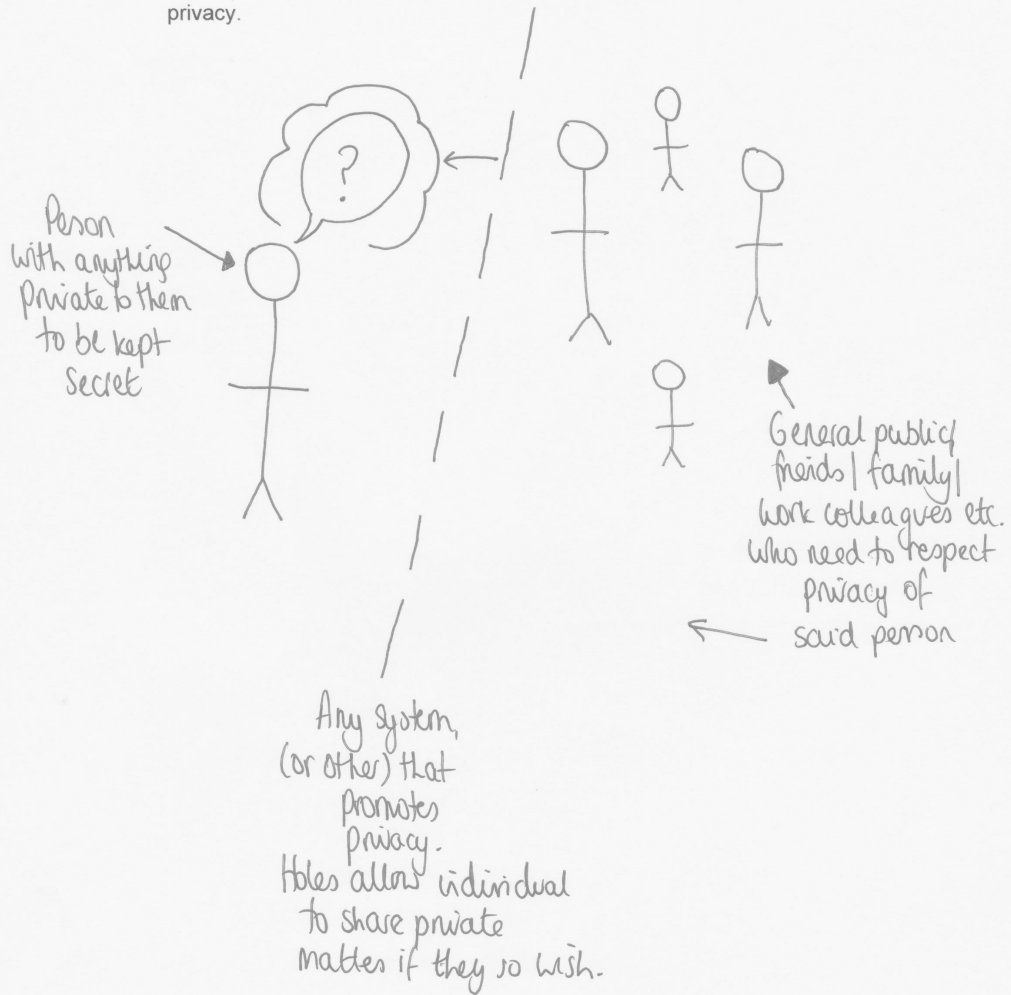 privacy.
?
Person
with anything
private to them
to be kept
secret
General public/
freids/ family/
work colleagues etc.
who need to respect
privacy of
said person
Any system,
(or other) that
promotes
privacy.
Holes allow individual
to share private
matters if they so wish.